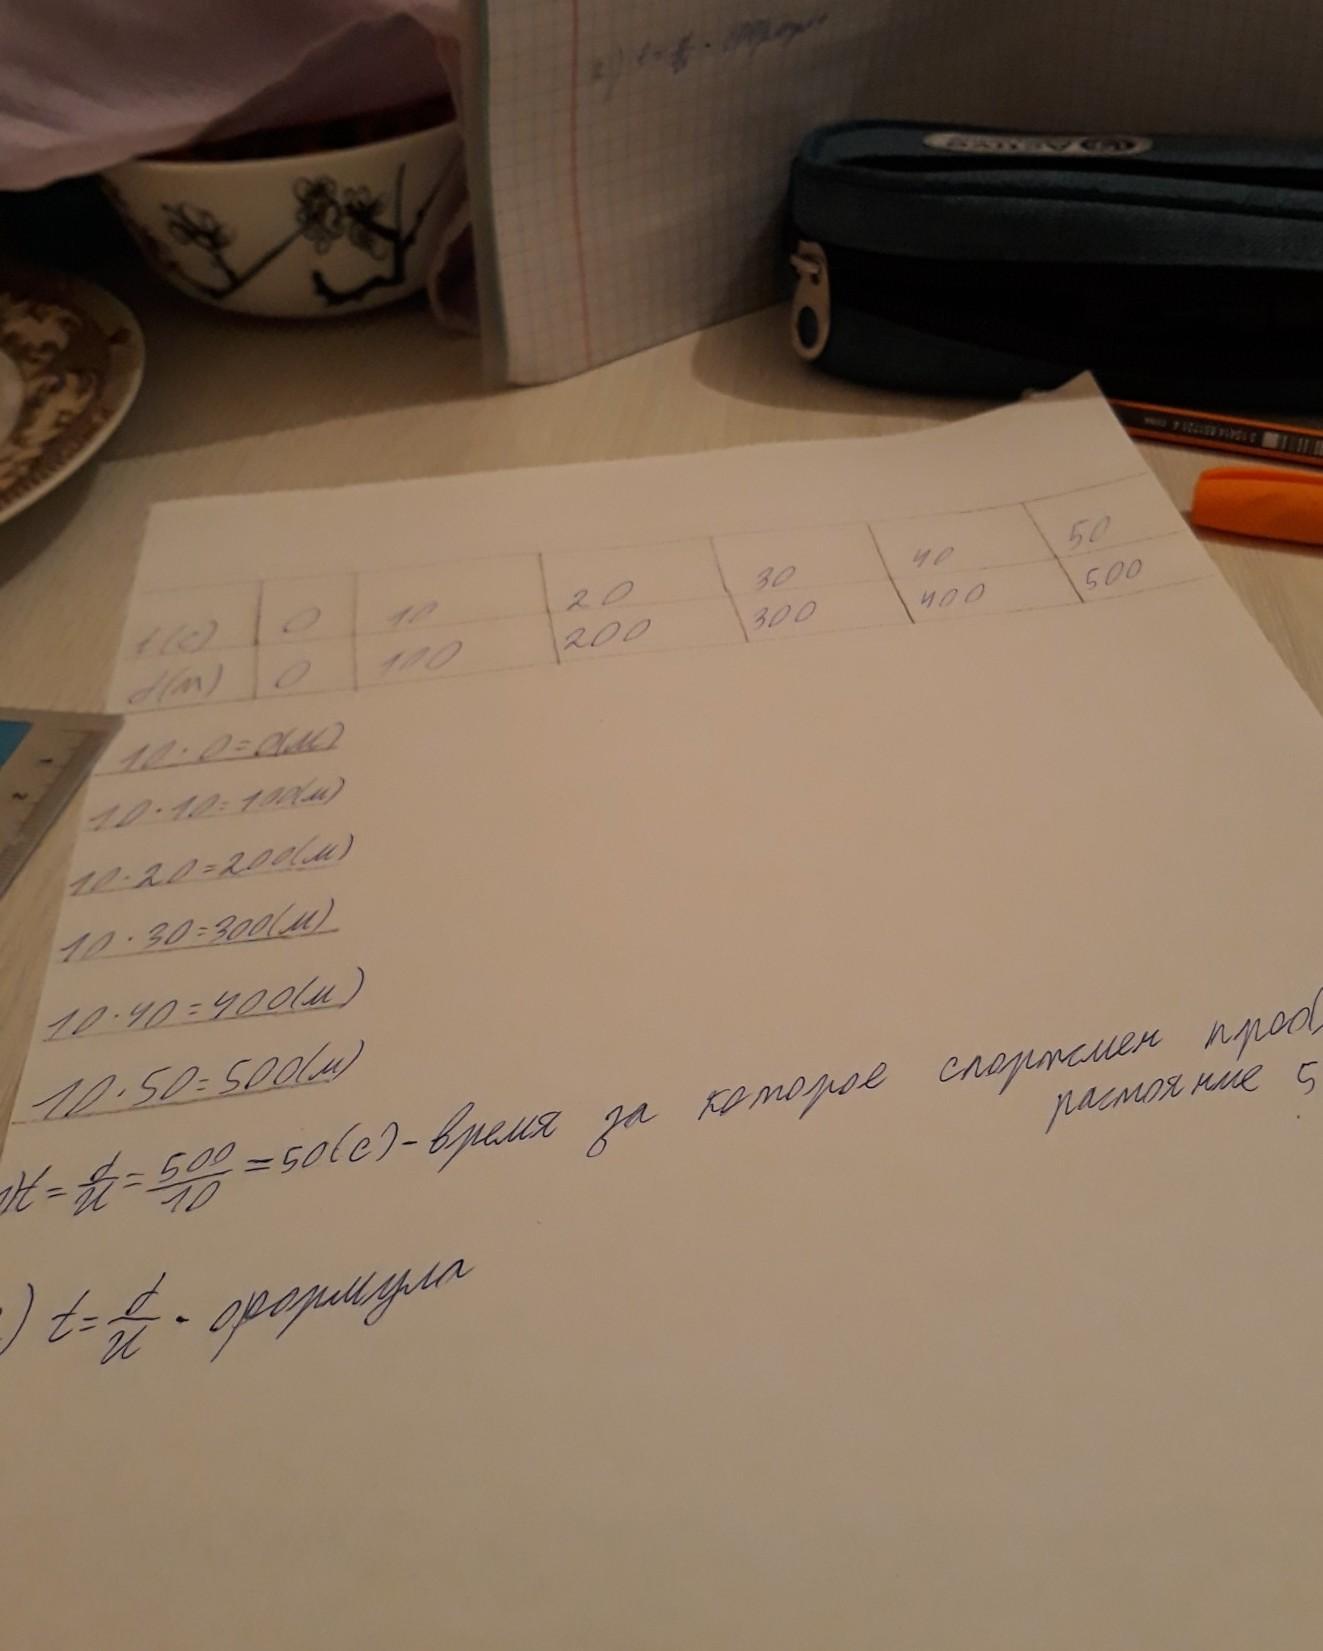 t(c) 0 10 20 30 40 50
d(м) 0 100 200 300 400 500
10·0=0(м)
10·10=100(м)
10·20=200(м)
10·30=300(м)
10·40=400(м)
10·50=500(м)
t=d/u=500/10=50(с)-время за которое спортсмен проб
растояние 5
) t=d/u - формула